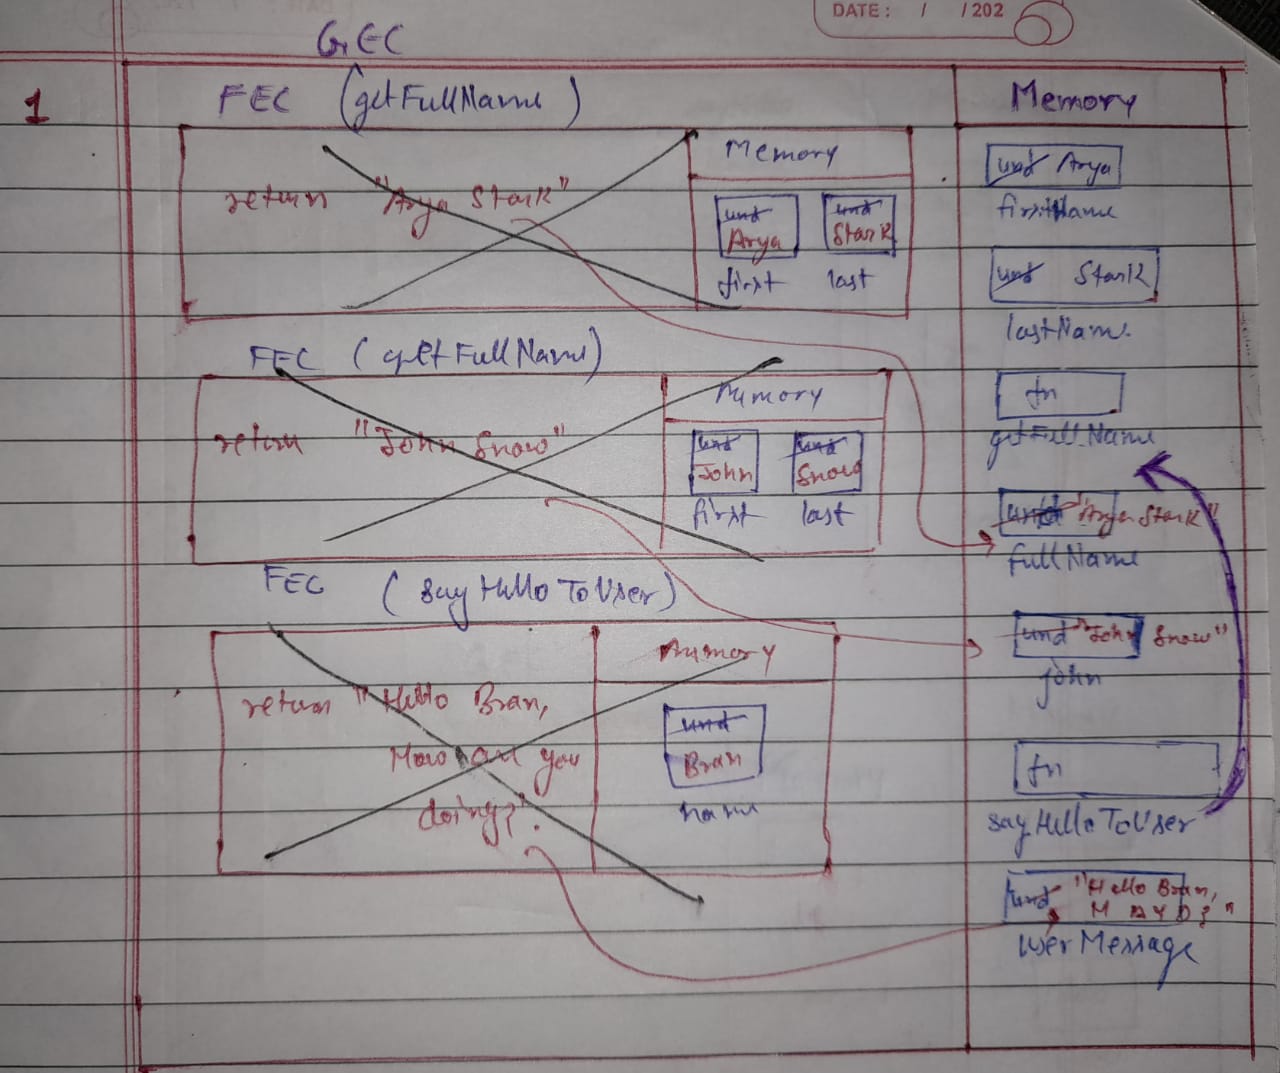 DATE: / /202
GEC
1
FEC (getFullName)
Memory
return "Arya Stark"
Memory
und Arya
first
und Stark
last
FEC (getFullName)
return "John Snow"
Memory
und John
first
und Snow
last
FEC (sayHelloToUser)
return "Hello Bran,
How are you
doing?".
Memory
und
Bran
name
und Arya
firstName
und Stark
lastName.
fn
getFullName
und "Arya Stark"
fullName
und "John Snow"
john
fn
sayHelloToUser
und "Hello Bran,
H A Y D ?"
userMessage